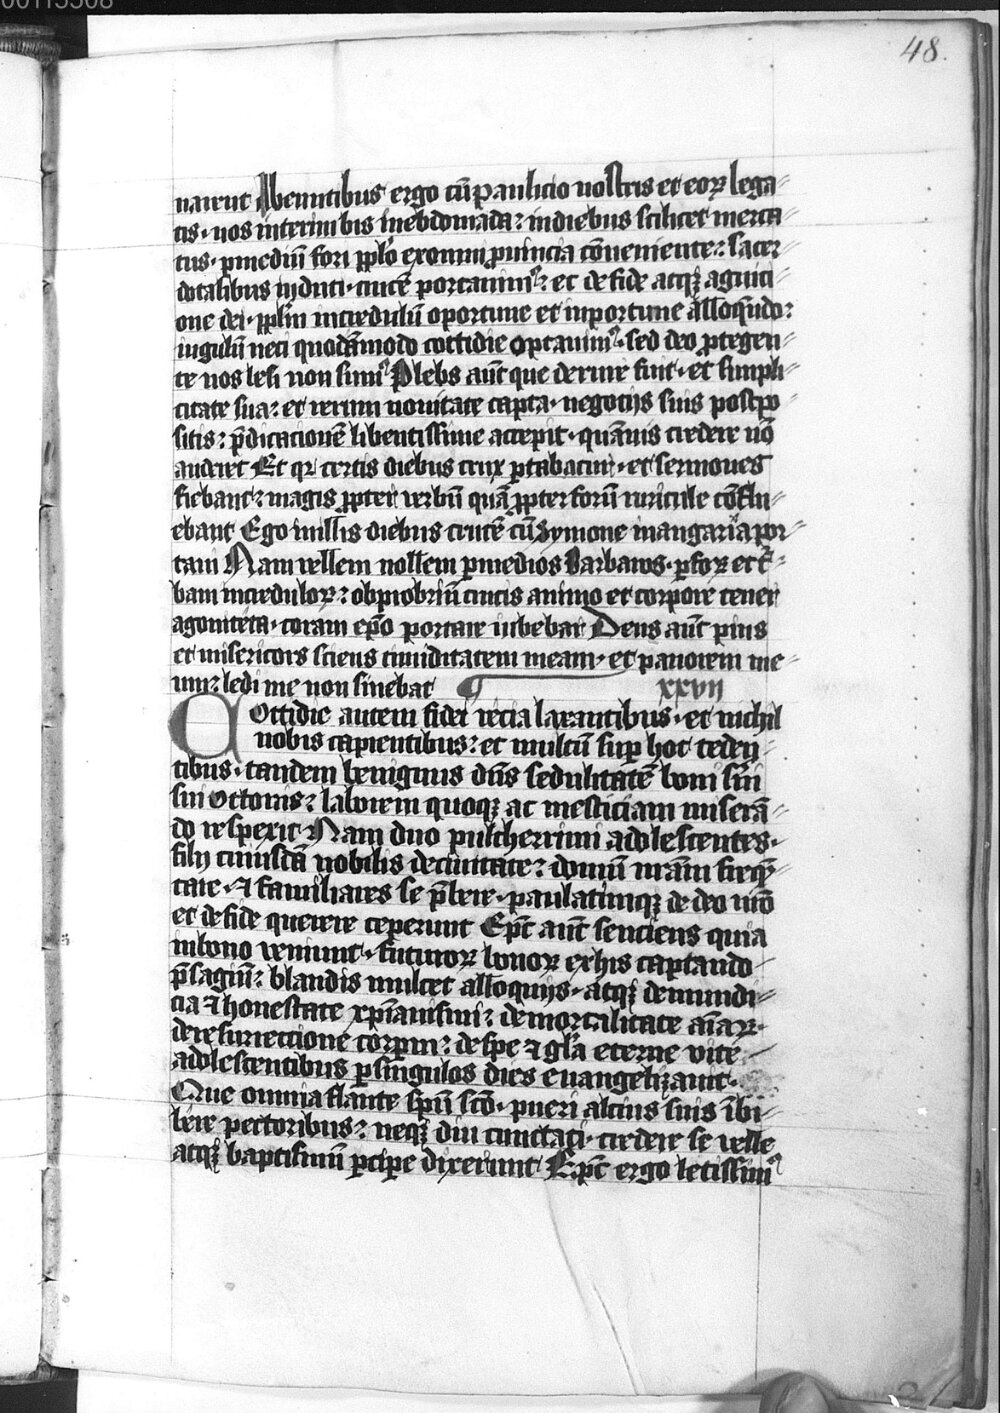 00115508
48.
narent Abeuntibus ergo cū paulicio nostris et eoꝝ lega⸗
tis· nos interim bis inebdomada: indiebus scilicet merca⸗
tus· ꝑmediū fori pplo exomni ꝓuincia cōueniente: sacer⸗
dotalibus induti· crucē portauimꝰ: et de fide atqꝫ agniti⸗
one dei· pplm incredulū oportune et inportune alloqndo:
iugulū neci quodāmodo cottidie optauimꝰ· sed deo ꝓtegen⸗
te nos lesi non sumꝰ Plebs aūt que de rure fuit· et simpli⸗
citate sua: et rerum nouitate capta· negotijs suis postpo⸗
sitis: p̄dicacionē libentissime accepit· quāuis credere nō
auderet Et qꝛ certis diebus crux ꝑtabatur· et sermones
fiebant: magis ꝓpter verbū quā ꝓpter forū ruricule cōflu⸗
ebant Ego in illis diebus crucē cū Symone inangaria por⸗
taui Nam vellem nollem ꝑ medios Barbaros· ꝑ foꝝ et t᷑⸗
bam incredulоꝝ: ob probriū crucis animo et corpore tener
agoniteta· coram ep̄o portare iubebar Deus aūt pius
et misericors sciens timiditatem meam· et pauorem me⸗
um: ledi me non sinebat xxvii
Cottidie autem fidei recia laxantibus· et nichil
nobis capientibus: et multū suꝑ hoc teden⸗
tibus· tandem benignus dn̄s sedulitatē boni s̄ui
sui Ottonis: laborem quoqꝫ ac mesticiam miserā⸗
do respexit Nam duo pulcherrimi adolescentes·
filij cuiusdā nobilis de ciuitate: domū nr̄am freqn̄⸗
tare· ⁊ familiares se p̄bere· paulatimqꝫ de deo nr̄o
et de fide querere ceperunt Ep̄c aūt senciens quia
inbono veniunt· futuroꝝ bonoꝝ exhis captando
p̄sagiū: blandis mulcet alloquijs· atqꝫ de mundi⸗
cia ⁊ honestate xp̄ianismi: de mortalitate aīaꝝ·
de resurrectione corpꝝm: de spe ⁊ gl̄a eterne vite
adolescentibus ꝑ singulos dies euangelizauit·
Que omnia flante sp̄u sc̄o· pueri alcius suis ībi⸗
bere pectoribus: neqꝫ diu cunctati· credere se velle
atqꝫ baptismū ꝑcipe dixerunt Ep̄c ergo letissimꝰ